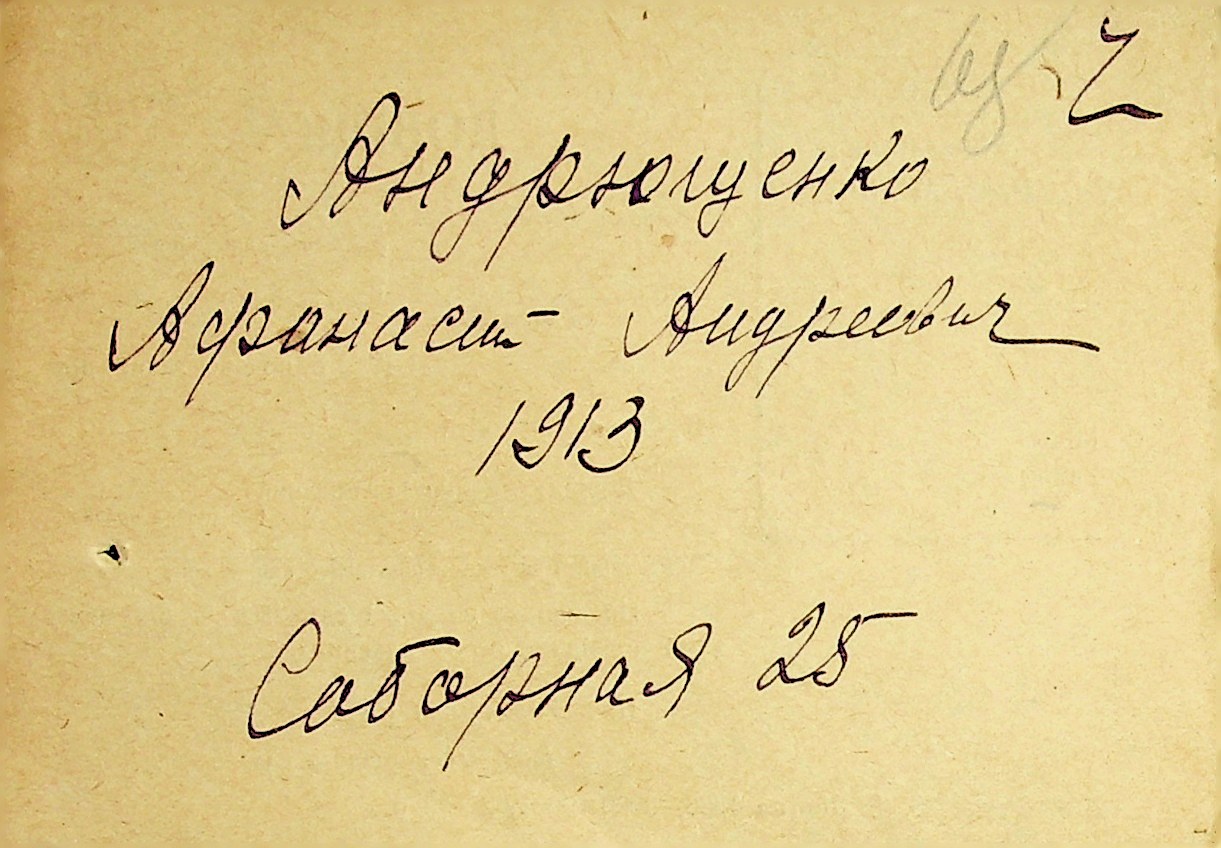 Андрющенко
Афанасий Андреевич
1913
Соборная 25